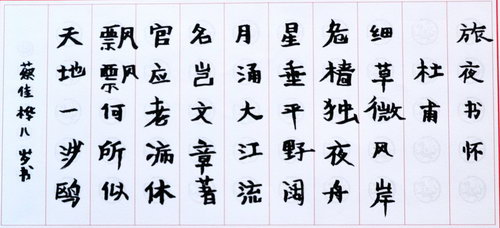 旅夜书怀
杜甫
细草微风岸
危樯独夜舟
星垂平野阔
月涌大江流
名岂文章著
官应老病休
飘飘何所似
天地一沙鸥
蔡佳桦八岁书